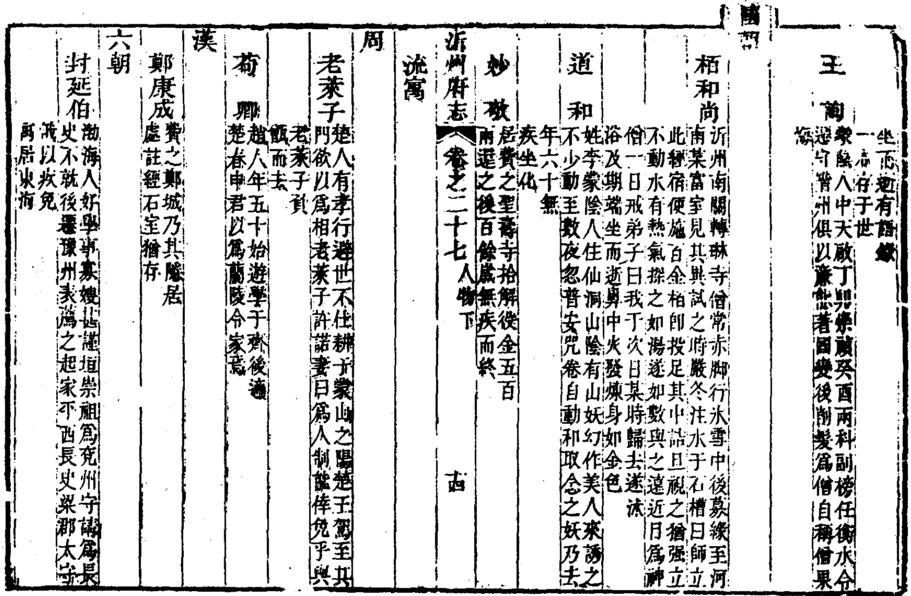 坐而逝有語錄
一卷存于世
王
蒙陰人中天啟丁卯崇禎癸酉兩科副榜任衡水令
守晋州俱以廉能著國變後削髮為僧自稱僧果
國朝
栢和尚
沂州南關轉琳寺僧常赤脚行氷雪中後募緣至河
南某富室見其異試之時嚴冬注水于石槽曰師立
此經宿便施百金栢即投足其中詰旦視之猶强立
不動水有熱氣探之如湯遂如數與之遠近目為神
僧一日戒弟子曰我于次日某時歸去遂沐
浴及期端坐而逝鼻中火發煉身如金色
道和
姓李蒙陰人住仙洞山陰有山妖幻作美人來誘之
不少動至數夜忽普安咒卷自動和取念之妖乃去
年六十無
疾坐化
妙敬
居費之聖壽寺拾解役金五百
兩還之後百餘歲無疾而終
沂州府志 卷之二十七 人物下 十四
流寓
周
老萊子
楚人有孝行避世不仕耕于蒙山之陽楚王駕至其
門欲以為相老萊子許諾妻曰為人制能倖免乎與
老萊子負
甑而去
荀卿
趙人年五十始遊學于齊後適
楚春申君以為蘭陵令家焉
漢
鄭康成
費之鄭城乃其隱居
處註經石室猶存
六朝
封延伯
渤海人好學事寡嫂甚謹垣崇祖為兗州字請為長
史不就後遷豫州表薦之起家平西長史梁郡太守
俄以疾免
寓居東海